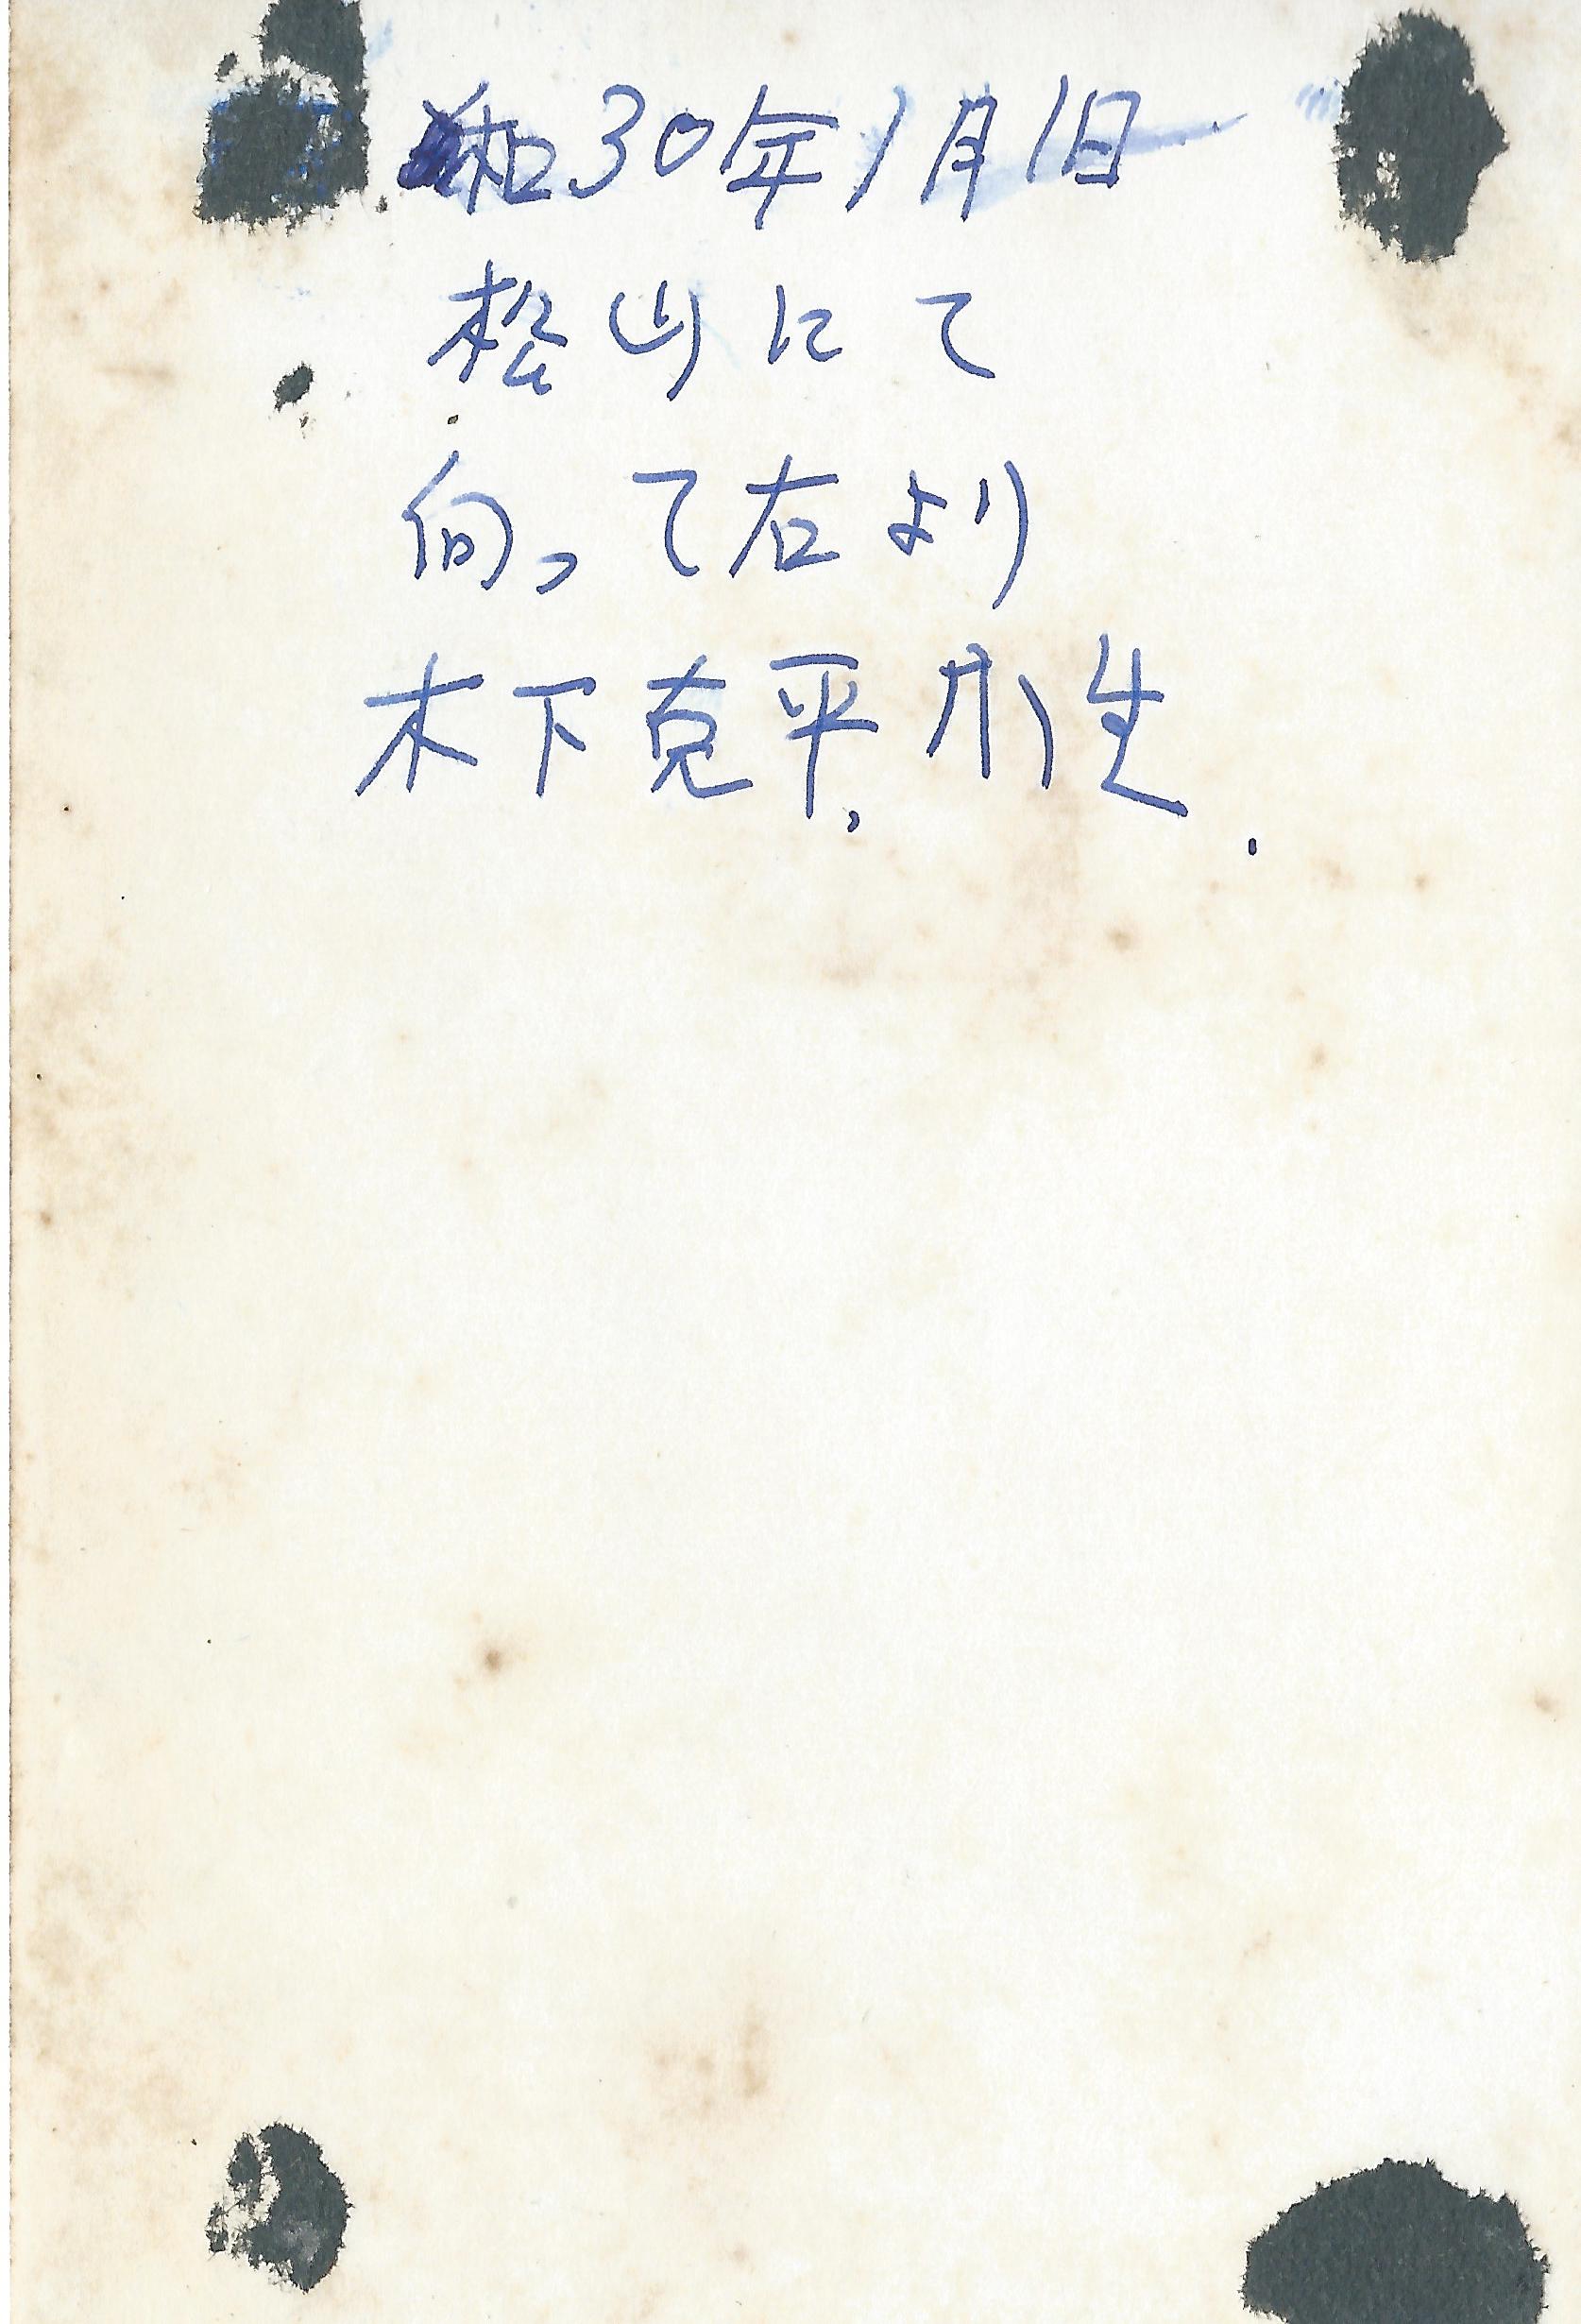 和30年1月1日
松山にて
向って右より
木下克平、小生.